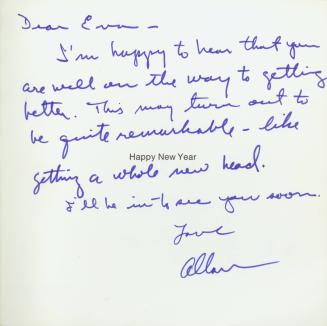 Dear Eva –
I'm happy to hear that you
are well on the way to getting
better. This may turn out to
be quite remarkable – like
Happy New Year
getting a whole new head.
I'll be in to see you soon.
Love
Allan